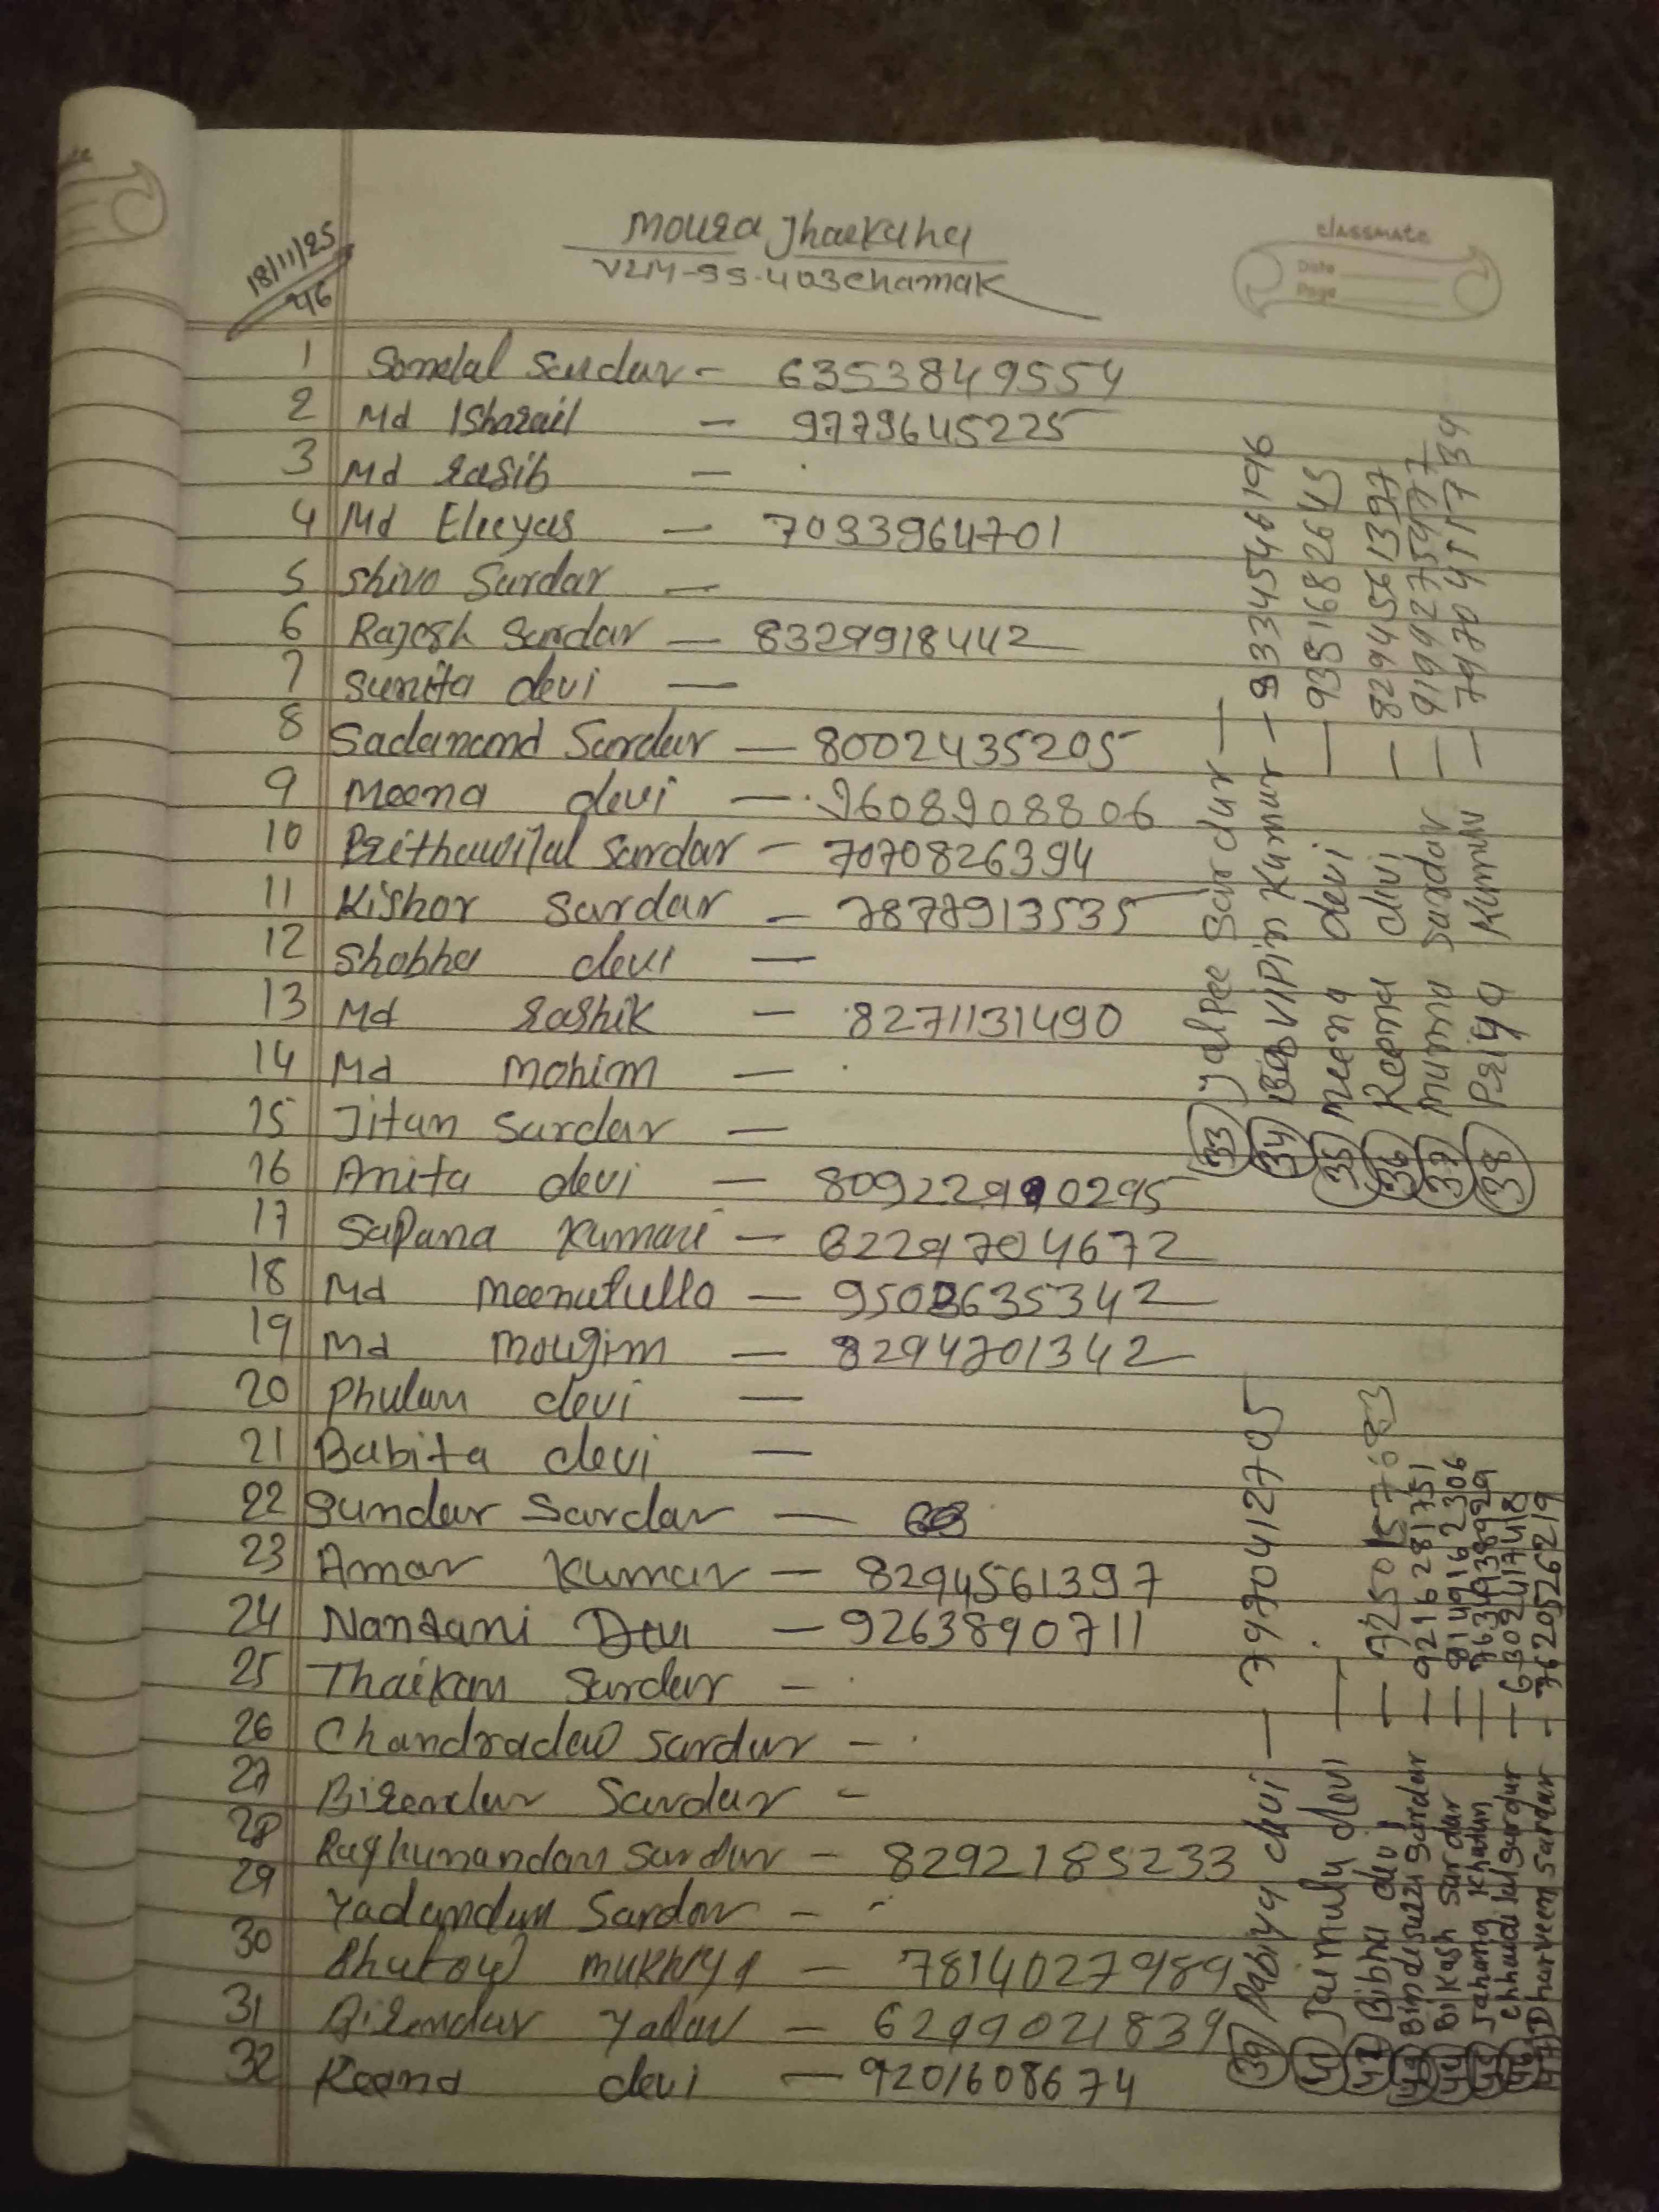 18/11/25
46
Mouza Jhaekaha
VLM-SS-403 chamak
classmate
Date
Page
1 Somelal Sardar - 6353849554
2 Md Isharail - 9779645225
3 Md Rasib -
4 Md Eleeyas - 7033964701
5 Shivo Sardar -
6 Rajesh Sardar - 8329918442
7 Sunita devi -
8 Sadanand Sardar - 8002435205
9 Meena devi - 9608908806
10 Prithawilal Sardar - 7070826394
11 Kishor Sardar - 7877913535
12 Shobha devi -
13 Md Rashik - 8271131490
14 Md Mohim -
15 Jitan Sardar -
16 Anita devi -
17 Sapana Kumari -
18 Md Meenatullo -
19 Md Mougim - 8294701342
20 Phulan devi -
21 Babita devi -
22 Sundar Sardar -
23 Amar Kumar - 8294561397
24 Nandani Devi - 9263890711
25 Thaikan Sardar -
26 Chandradev Sardar -
27 Birendar Sardar -
28 Raghunandan Sardar - 8292185233
29 Yadandan Sardar -
30 mukhiya - 7814027989
31 Birendar Yadav - 6299021839
32 Reena devi - 9201608674
33 Jalpee Sardar -
34 Vipin Kumar - 9334546196
35 Meena devi - 9351682645
36 Reena divi - 8294561397
37 Munna Sardar -
38 Priya Kumari -
39 Rabiya devi - 7970412705
41 Jaemulu devi -
42 Bibha devi - 7250157683
43 Bindesuzu Sardar - 9216281751
44 Bikash Sardar - 8149162306
45 Jahana Khatun - 7634938929
46 Chhaudi lal Sardar - 6302417418
47 Dharveen Sardar - 7620526219